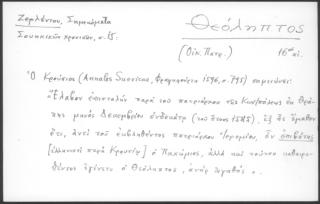 Ζερλέντου, Σημειώματα
Σουηκικῶν χρονικῶν, σ. 15:
Θεόληπτος
(Οἰκ. Πατρ.) 16ου αἰ.
Ὁ Κρούσιος (Annales Suevicae, Φραγκφούρτῃ 1596, σ. 795) σημειώνει:
"Ἔλαβον ἐπιστολὴν παρὰ τοῦ πατριάρχου τῆς Κων/πόλεως ἐν
μηνὸς Δεκεμβρίου (τοῦ ἔτους 1585). Ἐξ ἧς ἔμαθον
ὅτι, ἀντὶ τοῦ ἐκβληθέντος πατριάρχου Ἱερεμίου, ὃν
[ἑλληνιστὶ παρὰ Κρουσίῳ] ὁ Παχώμιος, ἀλλὰ καὶ τούτου καθαιρε-
θέντος ἐγένετο ὁ Θεόληπτος, ἀνὴρ ἀγαθός".